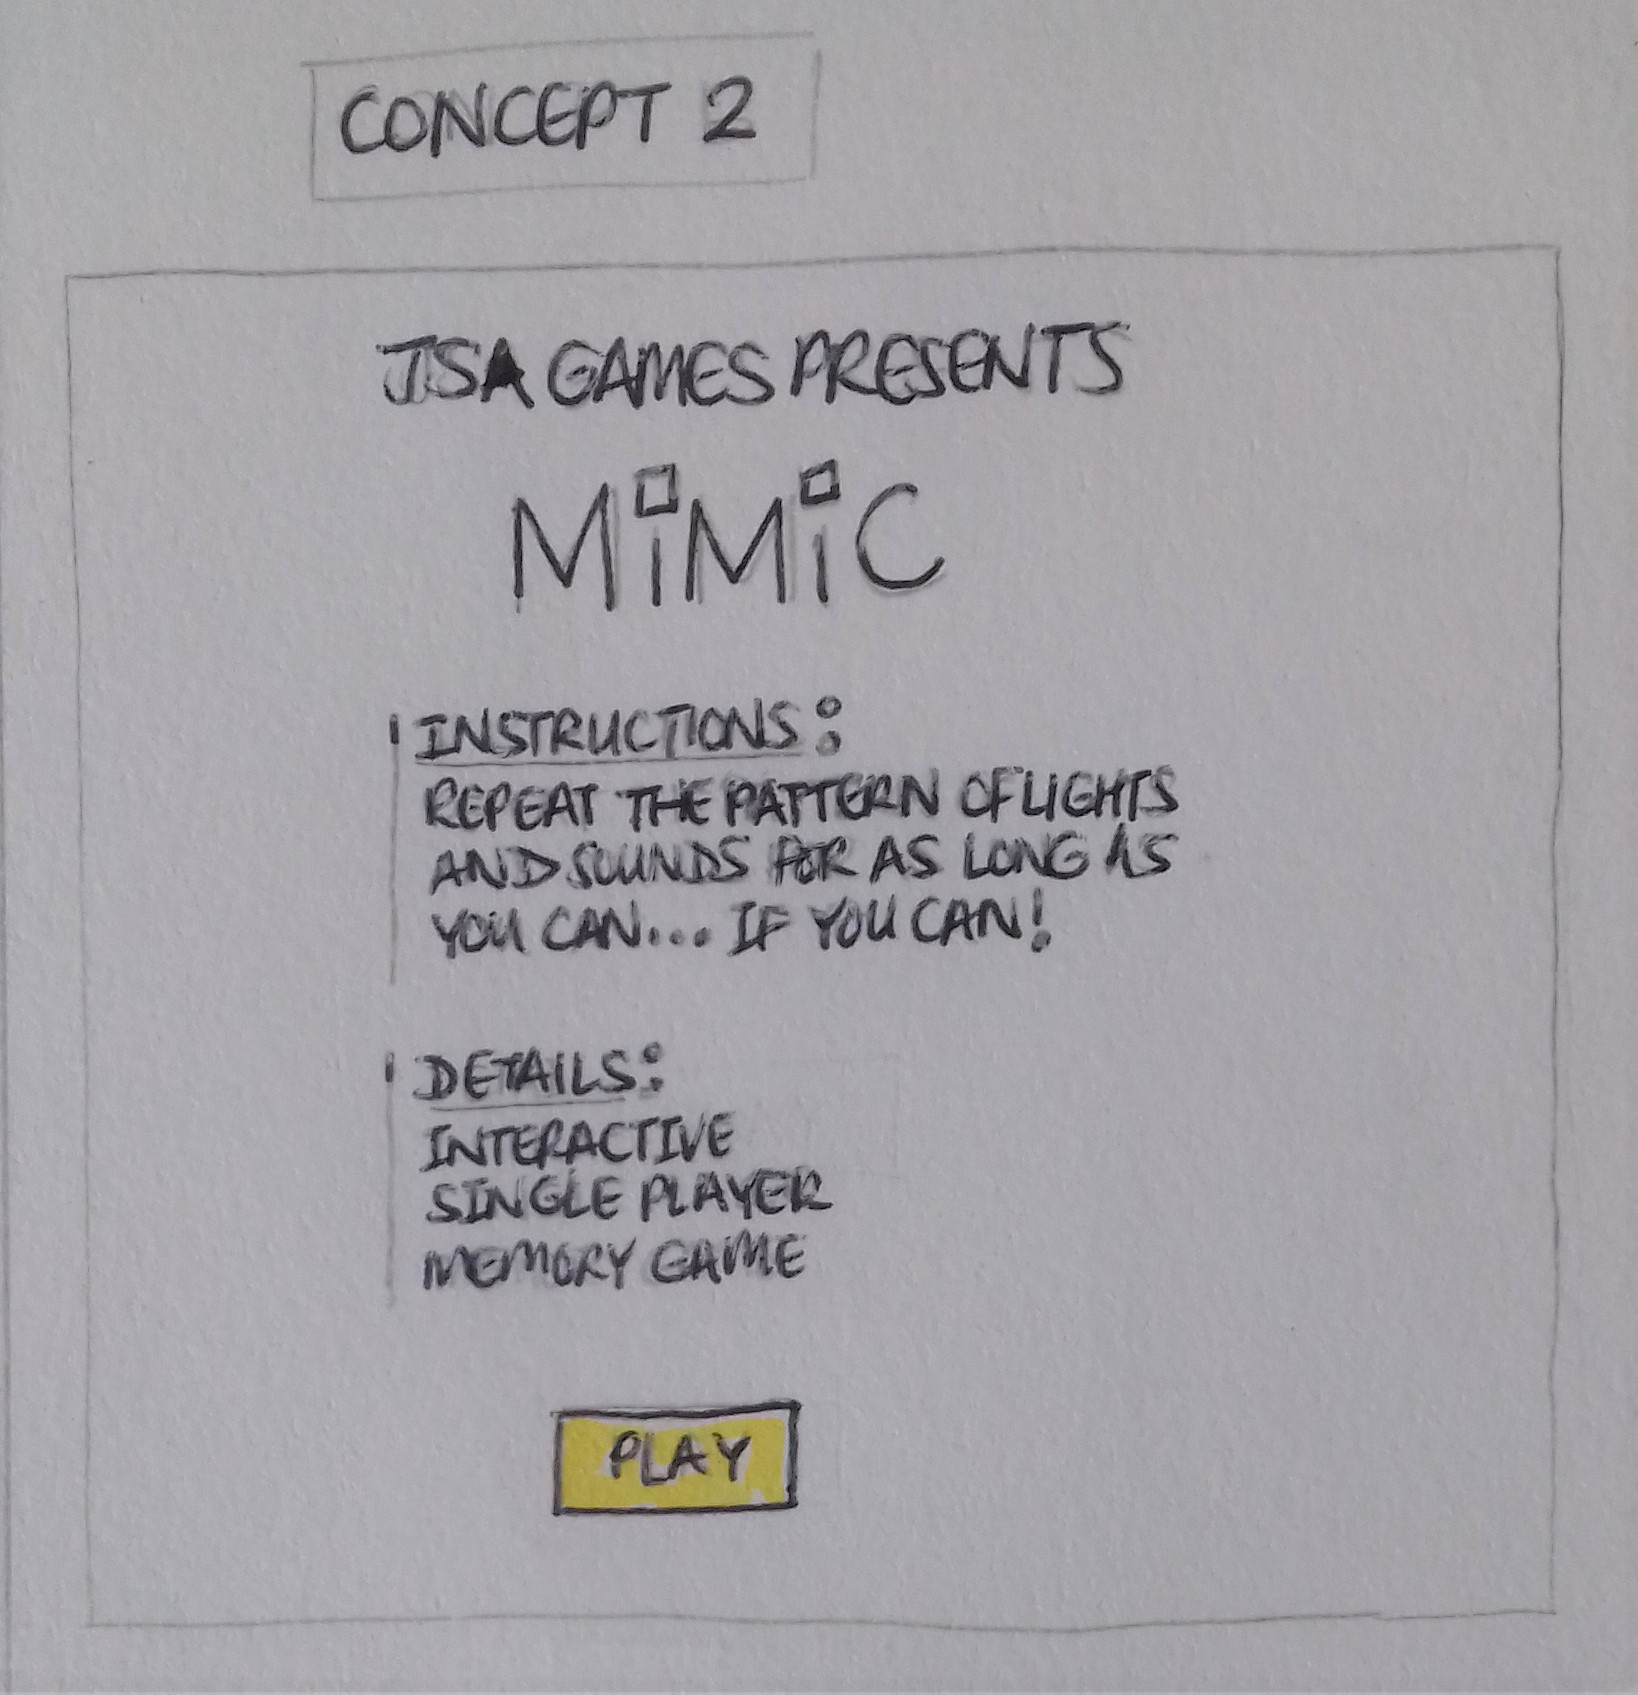 CONCEPT 2
JSA GAMES PRESENTS
MiMiC
INSTRUCTIONS:
REPEAT THE PATTERN OF LIGHTS
AND SOUNDS FOR AS LONG AS
YOU CAN... IF YOU CAN!
DETAILS:
INTERACTIVE
SINGLE PLAYER
MEMORY GAME
PLAY